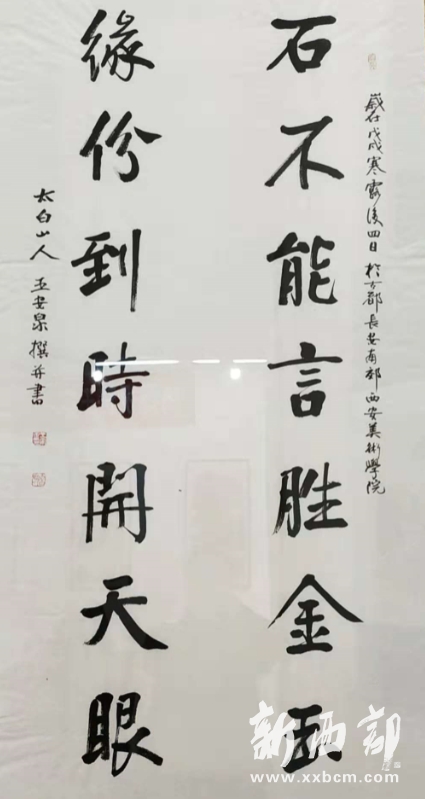 歲在戊戌寒露後四日於古都長安南郊西安美術學院
石不能言胜金玉
缘份到時開天眼
太白山人王安泉撰并書
新西部
www.xxbcm.com